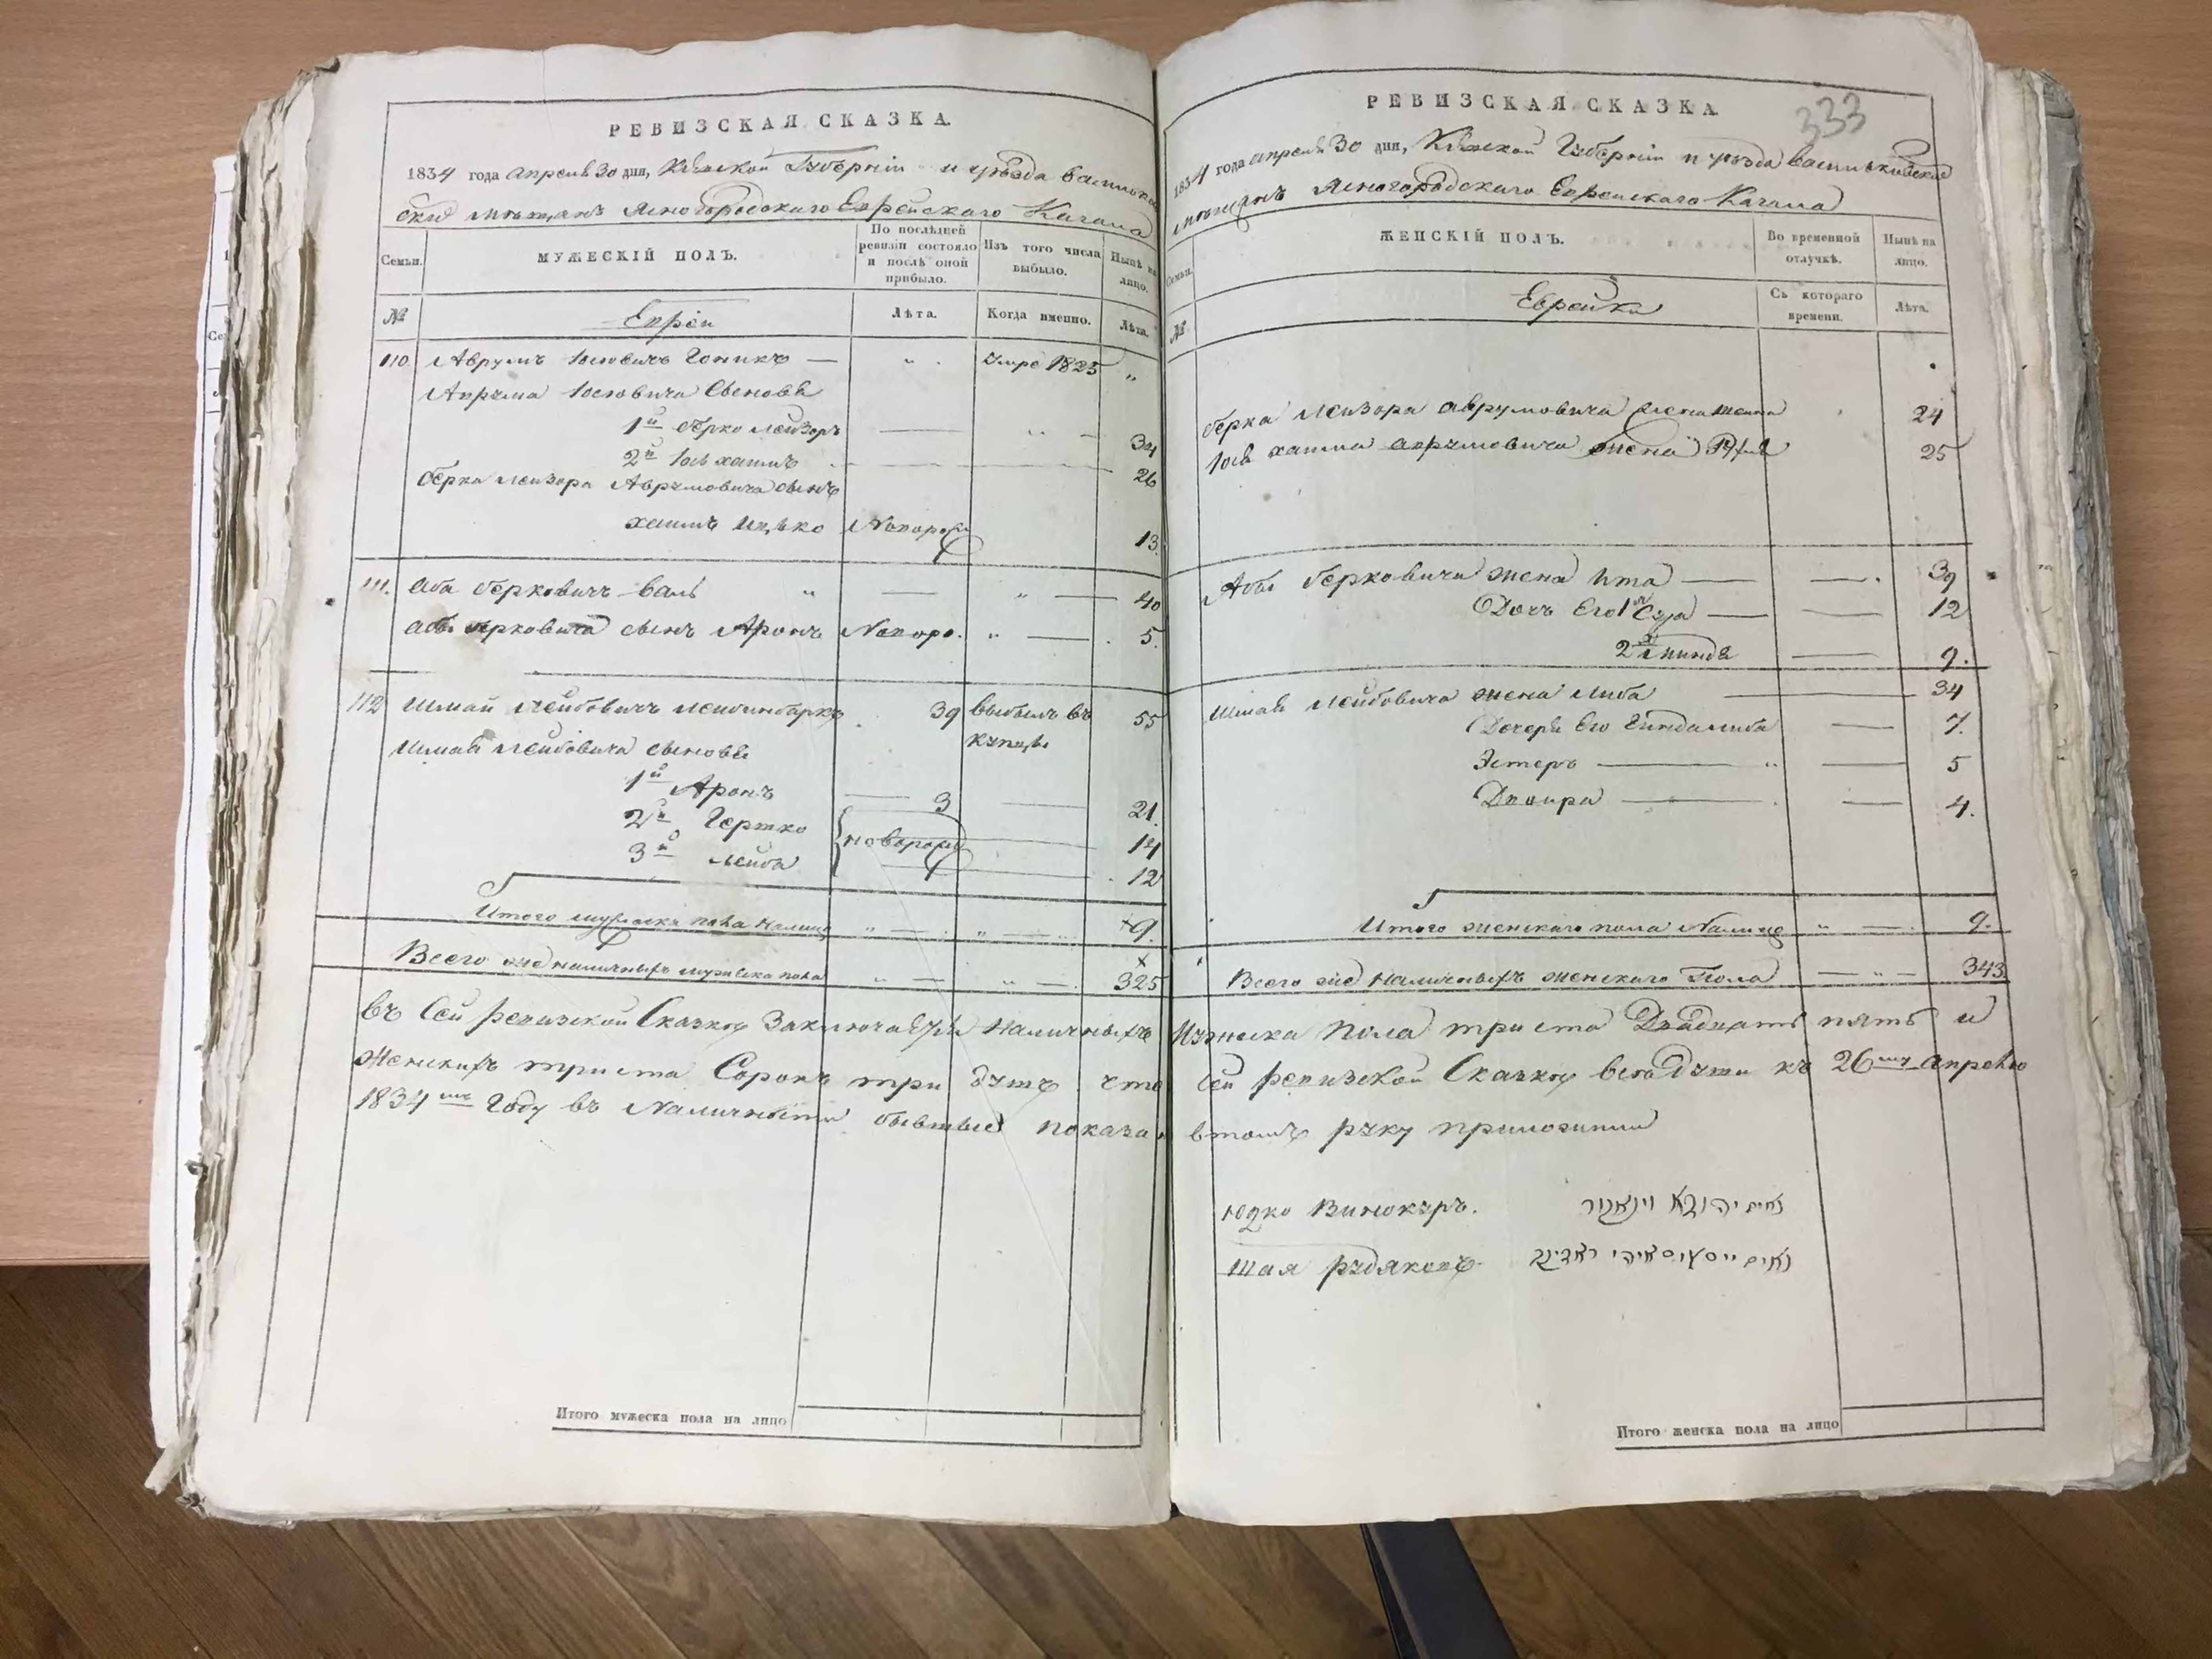 РЕВИЗСКАЯ СКАЗКА.
1834 года апреля 30 дня, Киевской Губерніи и уѣзда Василков
скихъ мѣщанъ Ясногородскаго Еврейскаго Кагала
Семьи.
МУЖЕСКІЙ ПОЛЪ.
По послѣдней ревизіи состояло и послѣ оной прибыло.
Изъ того числа выбыло.
Нынѣ на лицо.
№
Евреи
Лѣта.
Когда именно.
Лѣта.
110. Аврумъ Іосіовичъ Гоникъ — " умре 1825 "
Аврума Іосіовича сыновья
1й Берко Лейзоръ 34
2й Іось Хаимъ 26
Берка Лейзора Аврумовича сынъ
Хаимъ Ицько Новорож 13.
111. Аба Берковичъ Валь " — " — 40
Абы Берковича сынъ Аронъ Новоро. " — 5.
112 Шмай Лейбовичъ 39 выбылъ въ 55
Шмая Лейбовича сыновья купцы
1й Аронъ 3 21.
2й Гершко новорож 14
3й Лейба 12
Итого мужеска пола налицо " — " — 9.
Всего же наличныхъ мужеска пола " — " — 325
въ сей ревизской сказкѣ заключается наличныхъ
женскихъ триста сорокъ три душъ что
1834мъ году въ наличности бывшые показа
Итого мужеска пола на лицо
РЕВИЗСКАЯ СКАЗКА.
333
1834 года апреля 30 дня, Киевской Губерніи и уѣзда Васильковскихъ
мѣщанъ Ясногородскаго Еврейскаго Кагала
Семьи.
ЖЕНСКІЙ ПОЛЪ.
Во временной отлучкѣ.
Нынѣ на лицо.
№
Еврейки
Съ котораго времени.
Лѣта.
Берка Лейзора Аврумовича жена 24
Іося Хаима Аврумовича жена 25
Абы Берковича жена Ита — — 39
Дочь его 1я — — 12
2я — 9.
Шмая Лейбовича жена Либа — 34
Дочери его Гиндалиба — 7.
Эстеръ — " — 5
Двойра — — 4.
Итого женскаго пола налицо " — 9.
Всего же наличныхъ женскаго пола — " — 343.
мужеска пола триста двадцать пять и
сей ревизской сказкѣ все души къ 26му апрелю
втомъ руку приложили
Юдко Винокуръ. נאום יהודא וינאקור
Шая Рудяковъ.
Итого женска пола на лицо